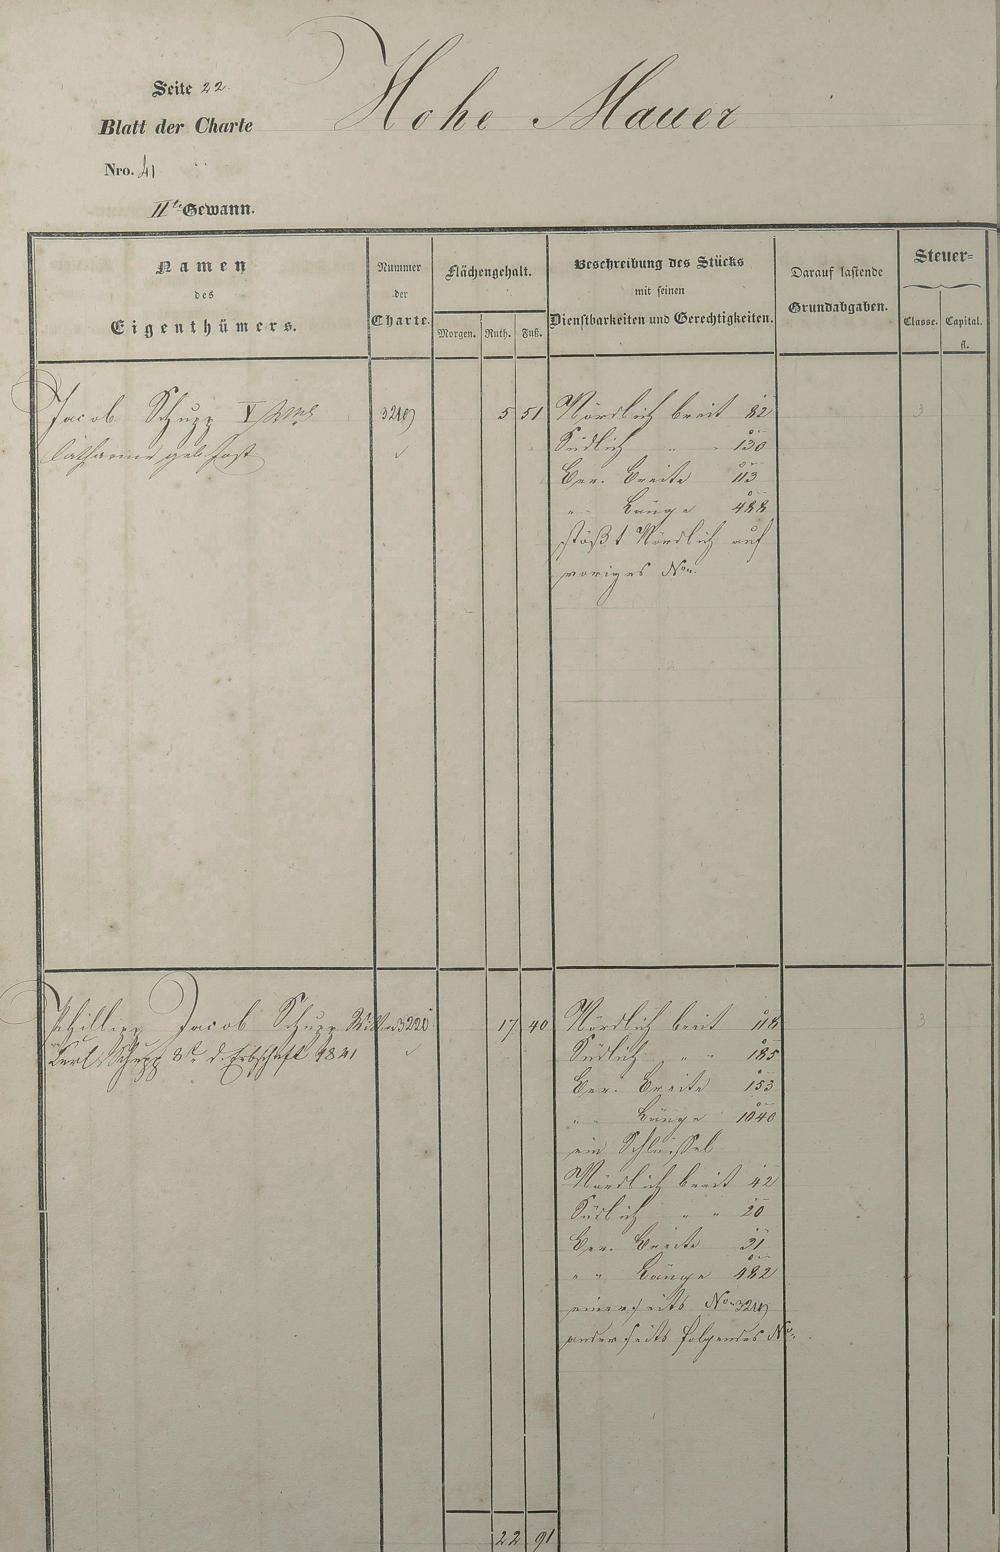 Seite 22.
Hohe Mauer
Blatt der Charte
Nro. 41
IIte Gewann.
Namen
des
Eigenthümers.
Nummer
der
Charte.
Flächengehalt.
Morgen. Ruth. Fuß.
Beschreibung des Stücks
mit seinen
Dienstbarkeiten und Gerechtigkeiten.
Darauf lastende
Grundabgaben.
Steuer-
Classe. Capital.
fl.
Jacob Schupp V 3219 5 51 Nördlich breit 82 3
Catharine geb. Jost Südlich " " 130
Ver. Breite 113
" Länge 488
stößt Nördlich auf
voriges No.
Phillipp Jacob Schupp 3220 17 40 Nördlich breit 118 3
Karl Schupp 3r d. Erbschaft 1841 Südlich " " 185
Ver. Breite 153
" Länge 1040
ein Schlüssel
Nördlich breit 42
Südlich " " 20
Ver. Breite 31
" " Länge 482
einerseits No. 3219
anderseits folgendes No.
22 91